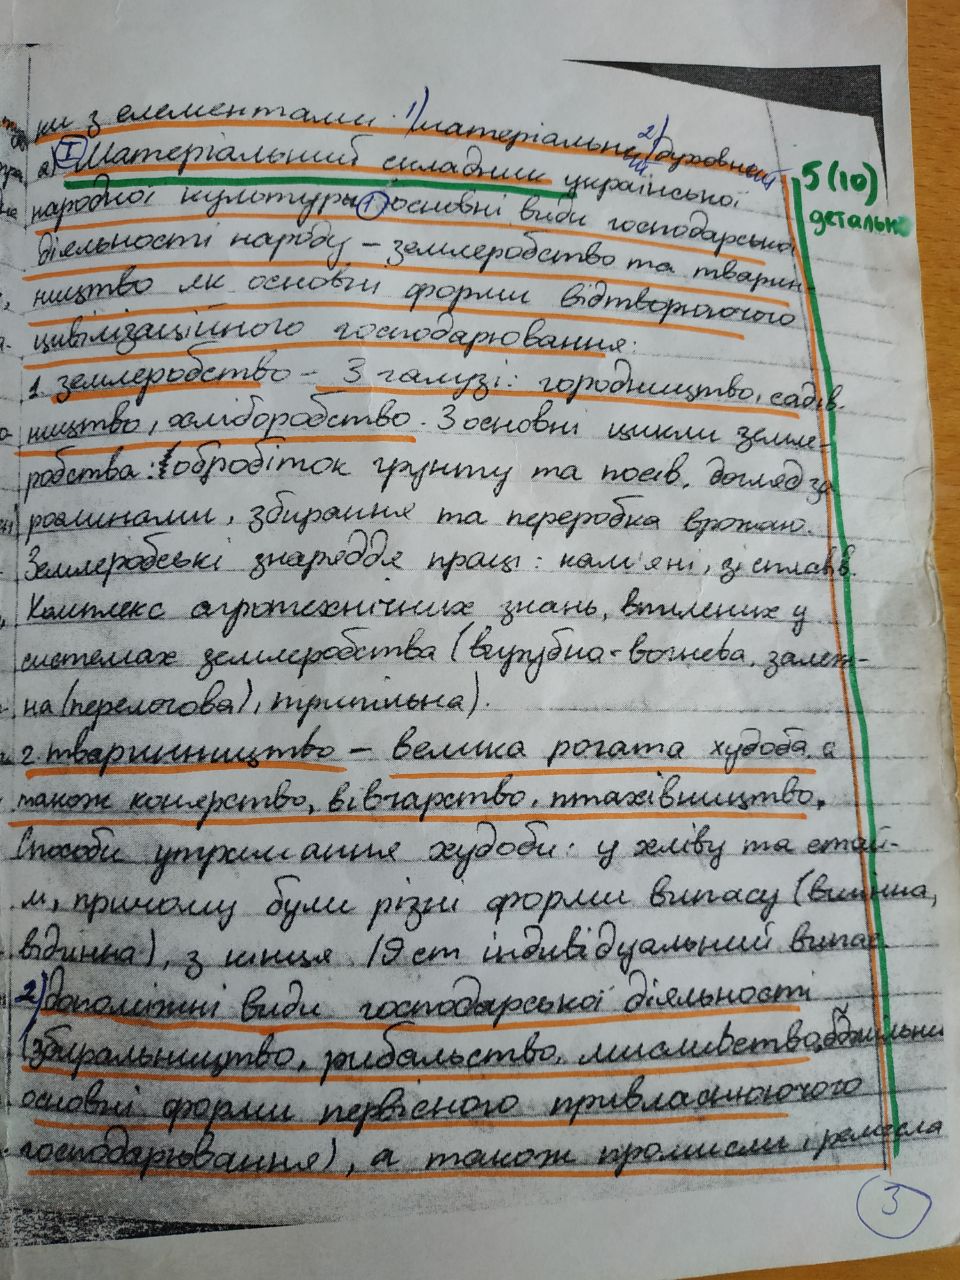 ни з елементами 1) матеріальний 2) духовний
а) I Матеріальний складник української
народної культури 1) основні види господарської
діяльності народу – землеробство та тварин-
ництво як основні форми відтворюючого
цивілізаційного господарювання:
1. землеробство – 3 галузі: городництво, садів-
ництво, хліборобство. 3 основні цикли земле-
робства: (обробіток грунту та посів, догляд за
рослинами, збирання та переробка врожаю.
Землеробські знаряддя праці: кам'яні, зі сплавів.
Комплекс агротехнічних знань, втілених у
системах землеробства (вирубно-вогнева, залеж-
на (перелогова), трипільна).
2. тваринництво – велика рогата худоба, а
також конярство, вівчарство, птахівництво.
Способи утримання худоби: у хліву та стай-
ні, причому були різні форми випасу (вигінна,
відгінна), з кінця 19 ст індивідуальний випас
2) допоміжні види господарської діяльності
(збиральництво, рибальство, мисливство, бджільни
основні форми первісного привласнюючого
господарювання), а також промисли і ремесла
5 (10)
детально
3